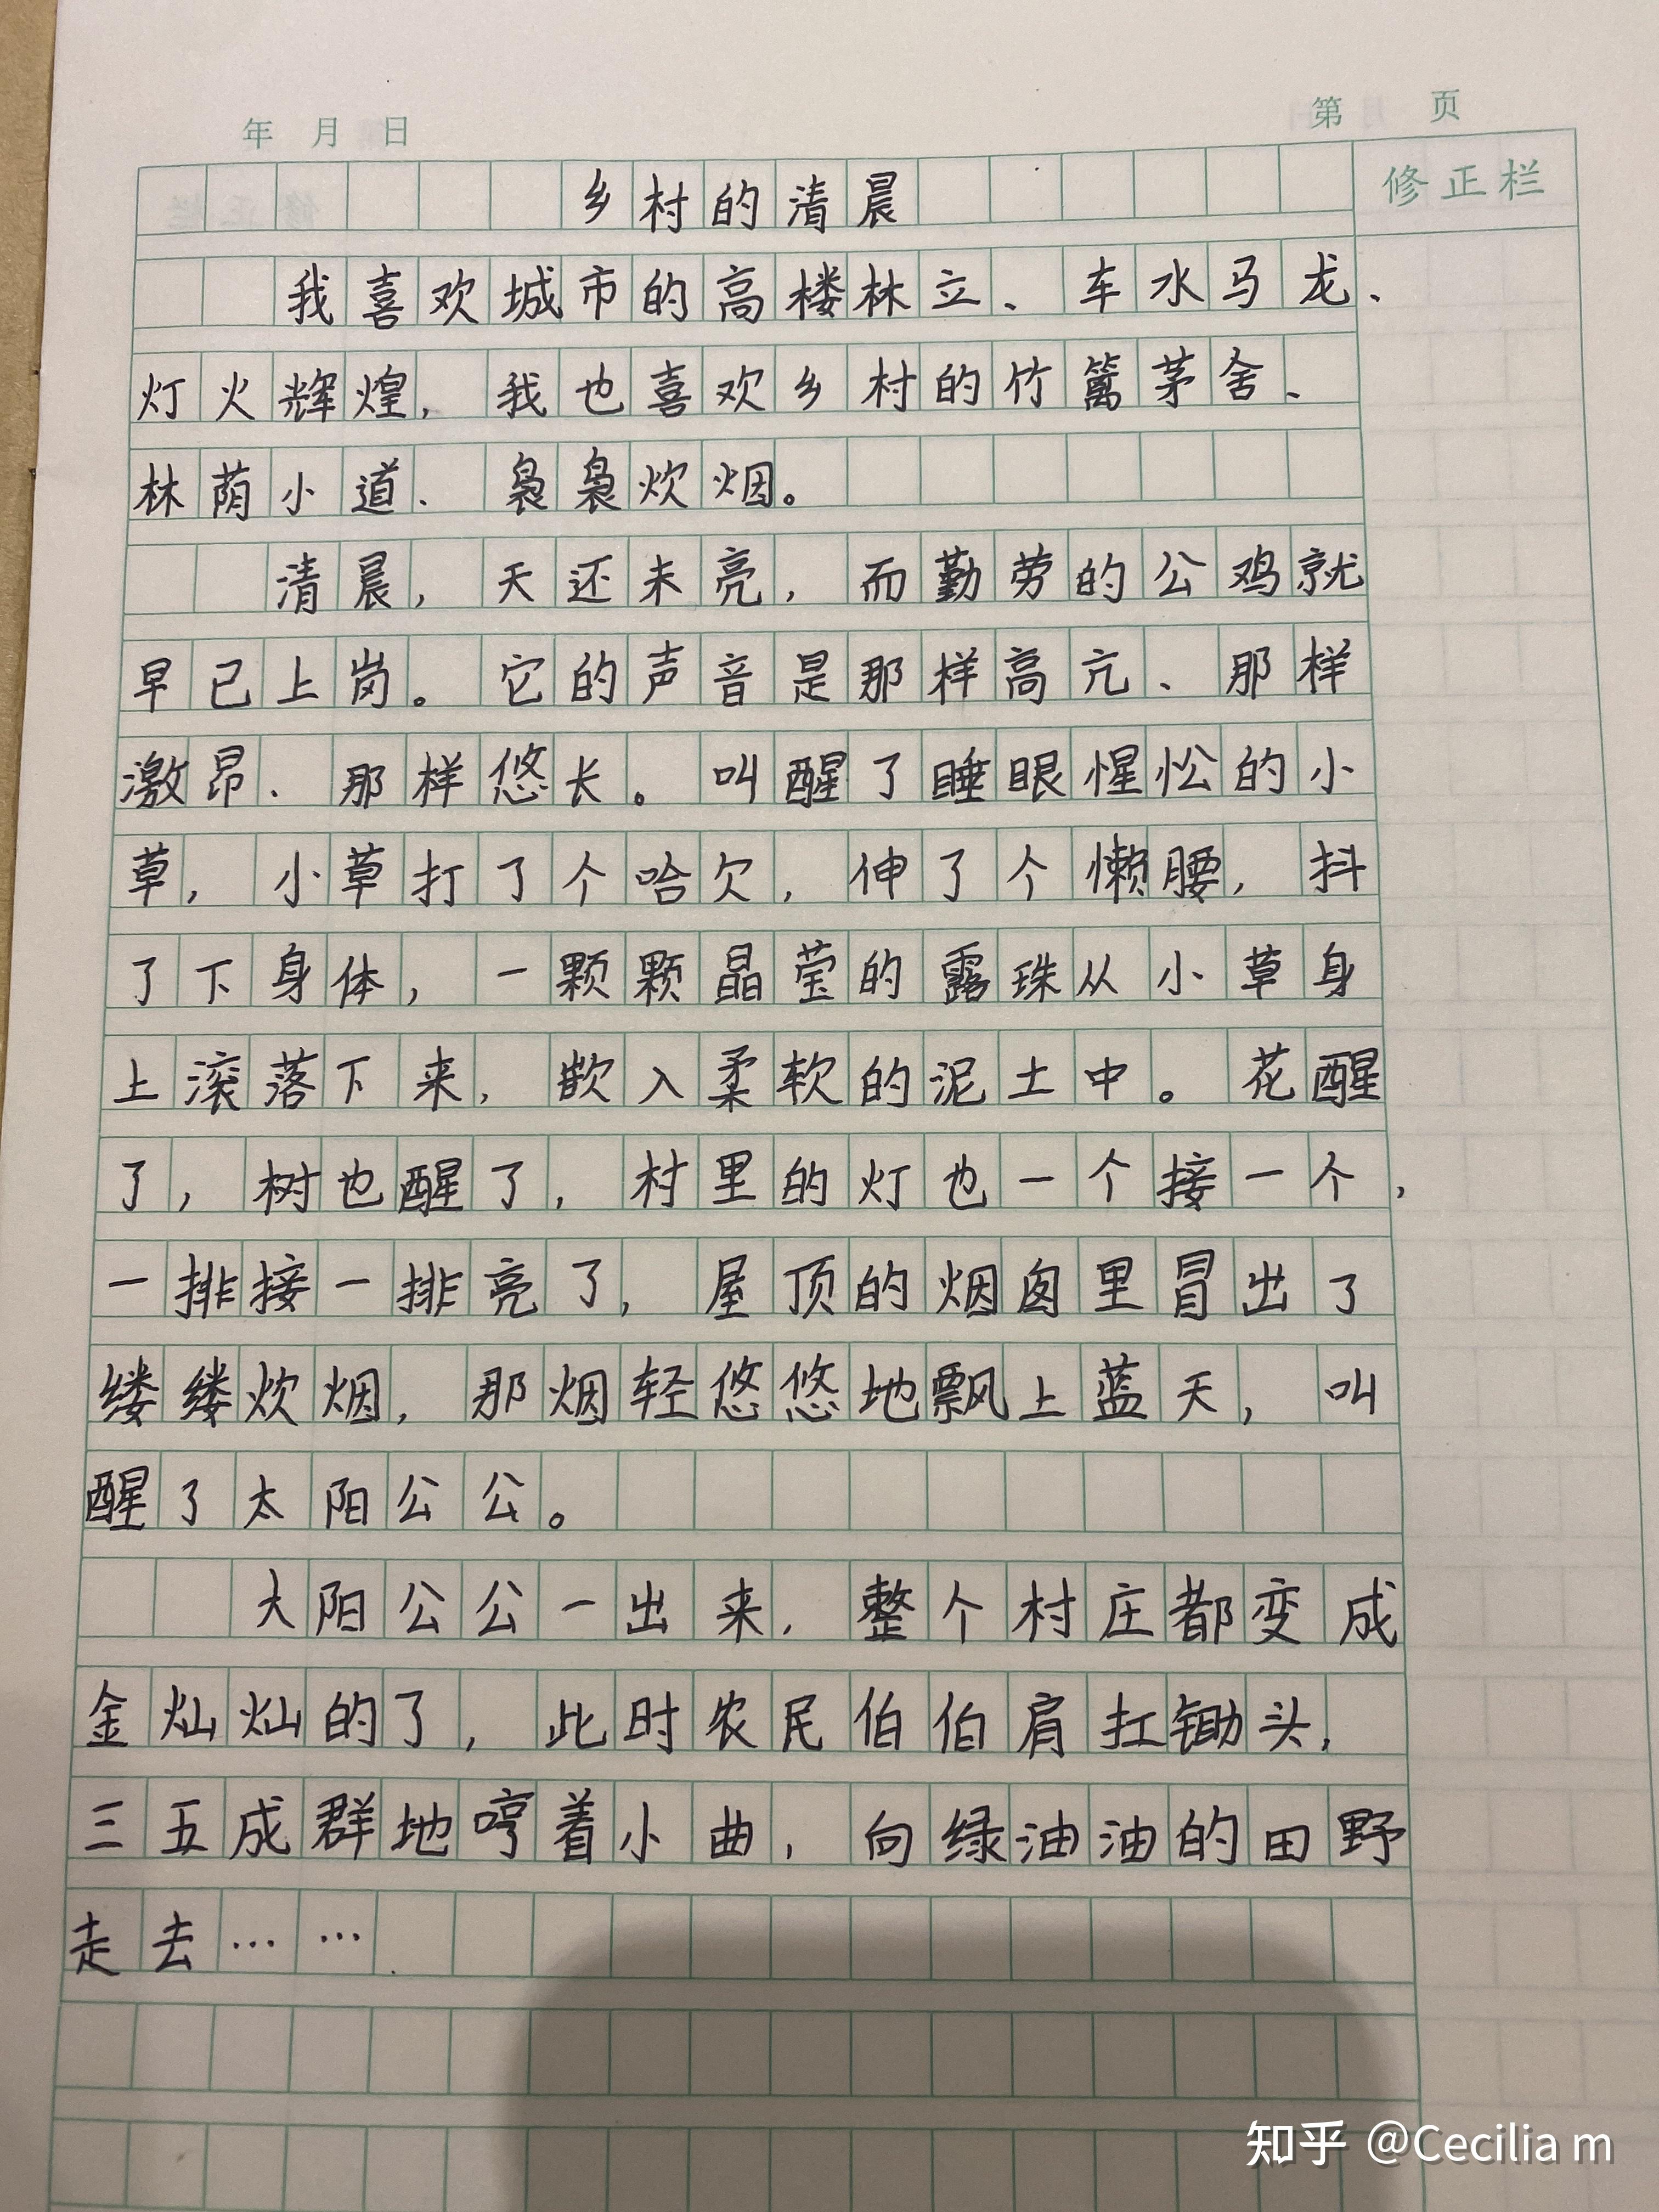 年 月 日
第 页
修正栏
乡村的清晨
我喜欢城市的高楼林立、车水马龙、
灯火辉煌，我也喜欢乡村的竹篱茅舍、
林荫小道、袅袅炊烟。
清晨，天还未亮，而勤劳的公鸡就
早已上岗。它的声音是那样高亢、那样
激昂、那样悠长。叫醒了睡眼惺忪的小
草，小草打了个哈欠，伸了个懒腰，抖
了下身体，一颗颗晶莹的露珠从小草身
上滚落下来，入柔软的泥土中。花醒
了，树也醒了，村里的灯也一个接一个，
一排接一排亮了，屋顶的烟囱里冒出了
缕缕炊烟，那烟轻悠悠地飘上蓝天，叫
醒了太阳公公。
大阳公公一出来，整个村庄都变成
金灿灿的了，此时农民伯伯肩扛锄头，
三五成群地哼着小曲，向绿油油的田野
走去……
知乎 @Cecilia m